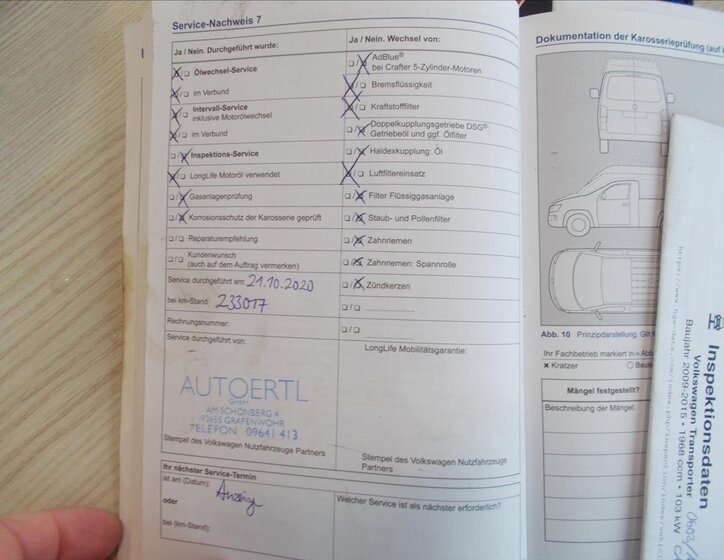 Service-Nachweis 7
Ja / Nein. Durchgeführt wurde:
Ölwechsel-Service
im Verbund
Intervall-Service
inklusive Motorölwechsel
im Verbund
Inspektions-Service
LongLife Motoröl verwendet
Gasanlagenprüfung
Korrosionsschutz der Karosserie geprüft
Reparaturempfehlung
Kundenwunsch
(auch auf dem Auftrag vermerken)
Service durchgeführt am: 21.10.2020
bei km-Stand: 233017
Rechnungsnummer:
Service durchgeführt von:
AUTOERTL
GmbH
AM SCHÖNBERG 4
92655 GRAFENWÖHR
TELEFON 09641 413
Stempel des Volkswagen Nutzfahrzeuge Partners
Ihr nächster Service-Termin
ist am (Datum): Anzeige
oder
bei (km-Stand):
Ja / Nein. Wechsel von:
AdBlue®
bei Crafter 5-Zylinder-Motoren
Bremsflüssigkeit
Kraftstofffilter
Doppelkupplungsgetriebe DSG®:
Getriebeöl und ggf. Ölfilter
Haldexkupplung: Öl
Luftfiltereinsatz
Filter Flüssiggasanlage
Staub- und Pollenfilter
Zahnriemen
Zahnriemen: Spannrolle
Zündkerzen
LongLife Mobilitätsgarantie:
Stempel des Volkswagen Nutzfahrzeuge
Partners
Welcher Service ist als nächster erforderlich?
Dokumentation der Karosserieprüfung (auf
Abb. 10 Prinzipdarstellung. Gilt
Ihr Fachbetrieb markiert in
Kratzer
Mängel festgestellt?
Beschreibung der Mängel:
Inspektionsdaten
Volkswagen Transporter
Baujahr 2009/2015 • 1968 ccm • 103 kW